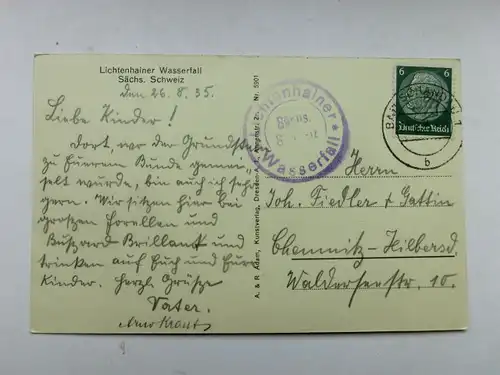 Lichtenhainer Wasserfall
Sächs. Schweiz
den 26. 8. 35.
Liebe Kinder!
Dort, wo der Grundstein
zu Eurem Bunde gemei-
ßelt wurde, bin auch ich sehr
gern. Wir sitzen hier bei
großen Forellen und
Brillant und
trinken auf Euch und Eure
Kinder. Herzl. Grüße
Vater.
A. & R. Adam, Kunstverlag, Dresden Nr. 5901
Lichtenhainer
Wasserfall
6 6
Deutsches Reich
BAD SCHANDAU 1
b
Herrn
Joh. Fiedler & Gattin
Chemnitz-Hilbersd.
Walderseestr. 10.